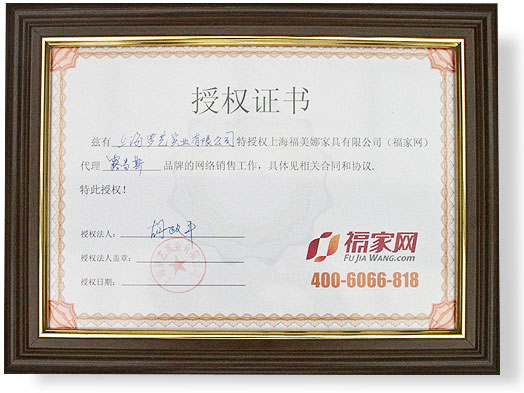 授权证书
兹有 上海罗芜实业有限公司特授权上海福美娜家具有限公司（福家网）
代理 品牌的网络销售工作，具体见相关合同和协议.
特此授权！
授权法人： 胡政平
授权法人盖章：
授权日期：
福家网
FU JIA WANG.com
400-6066-818